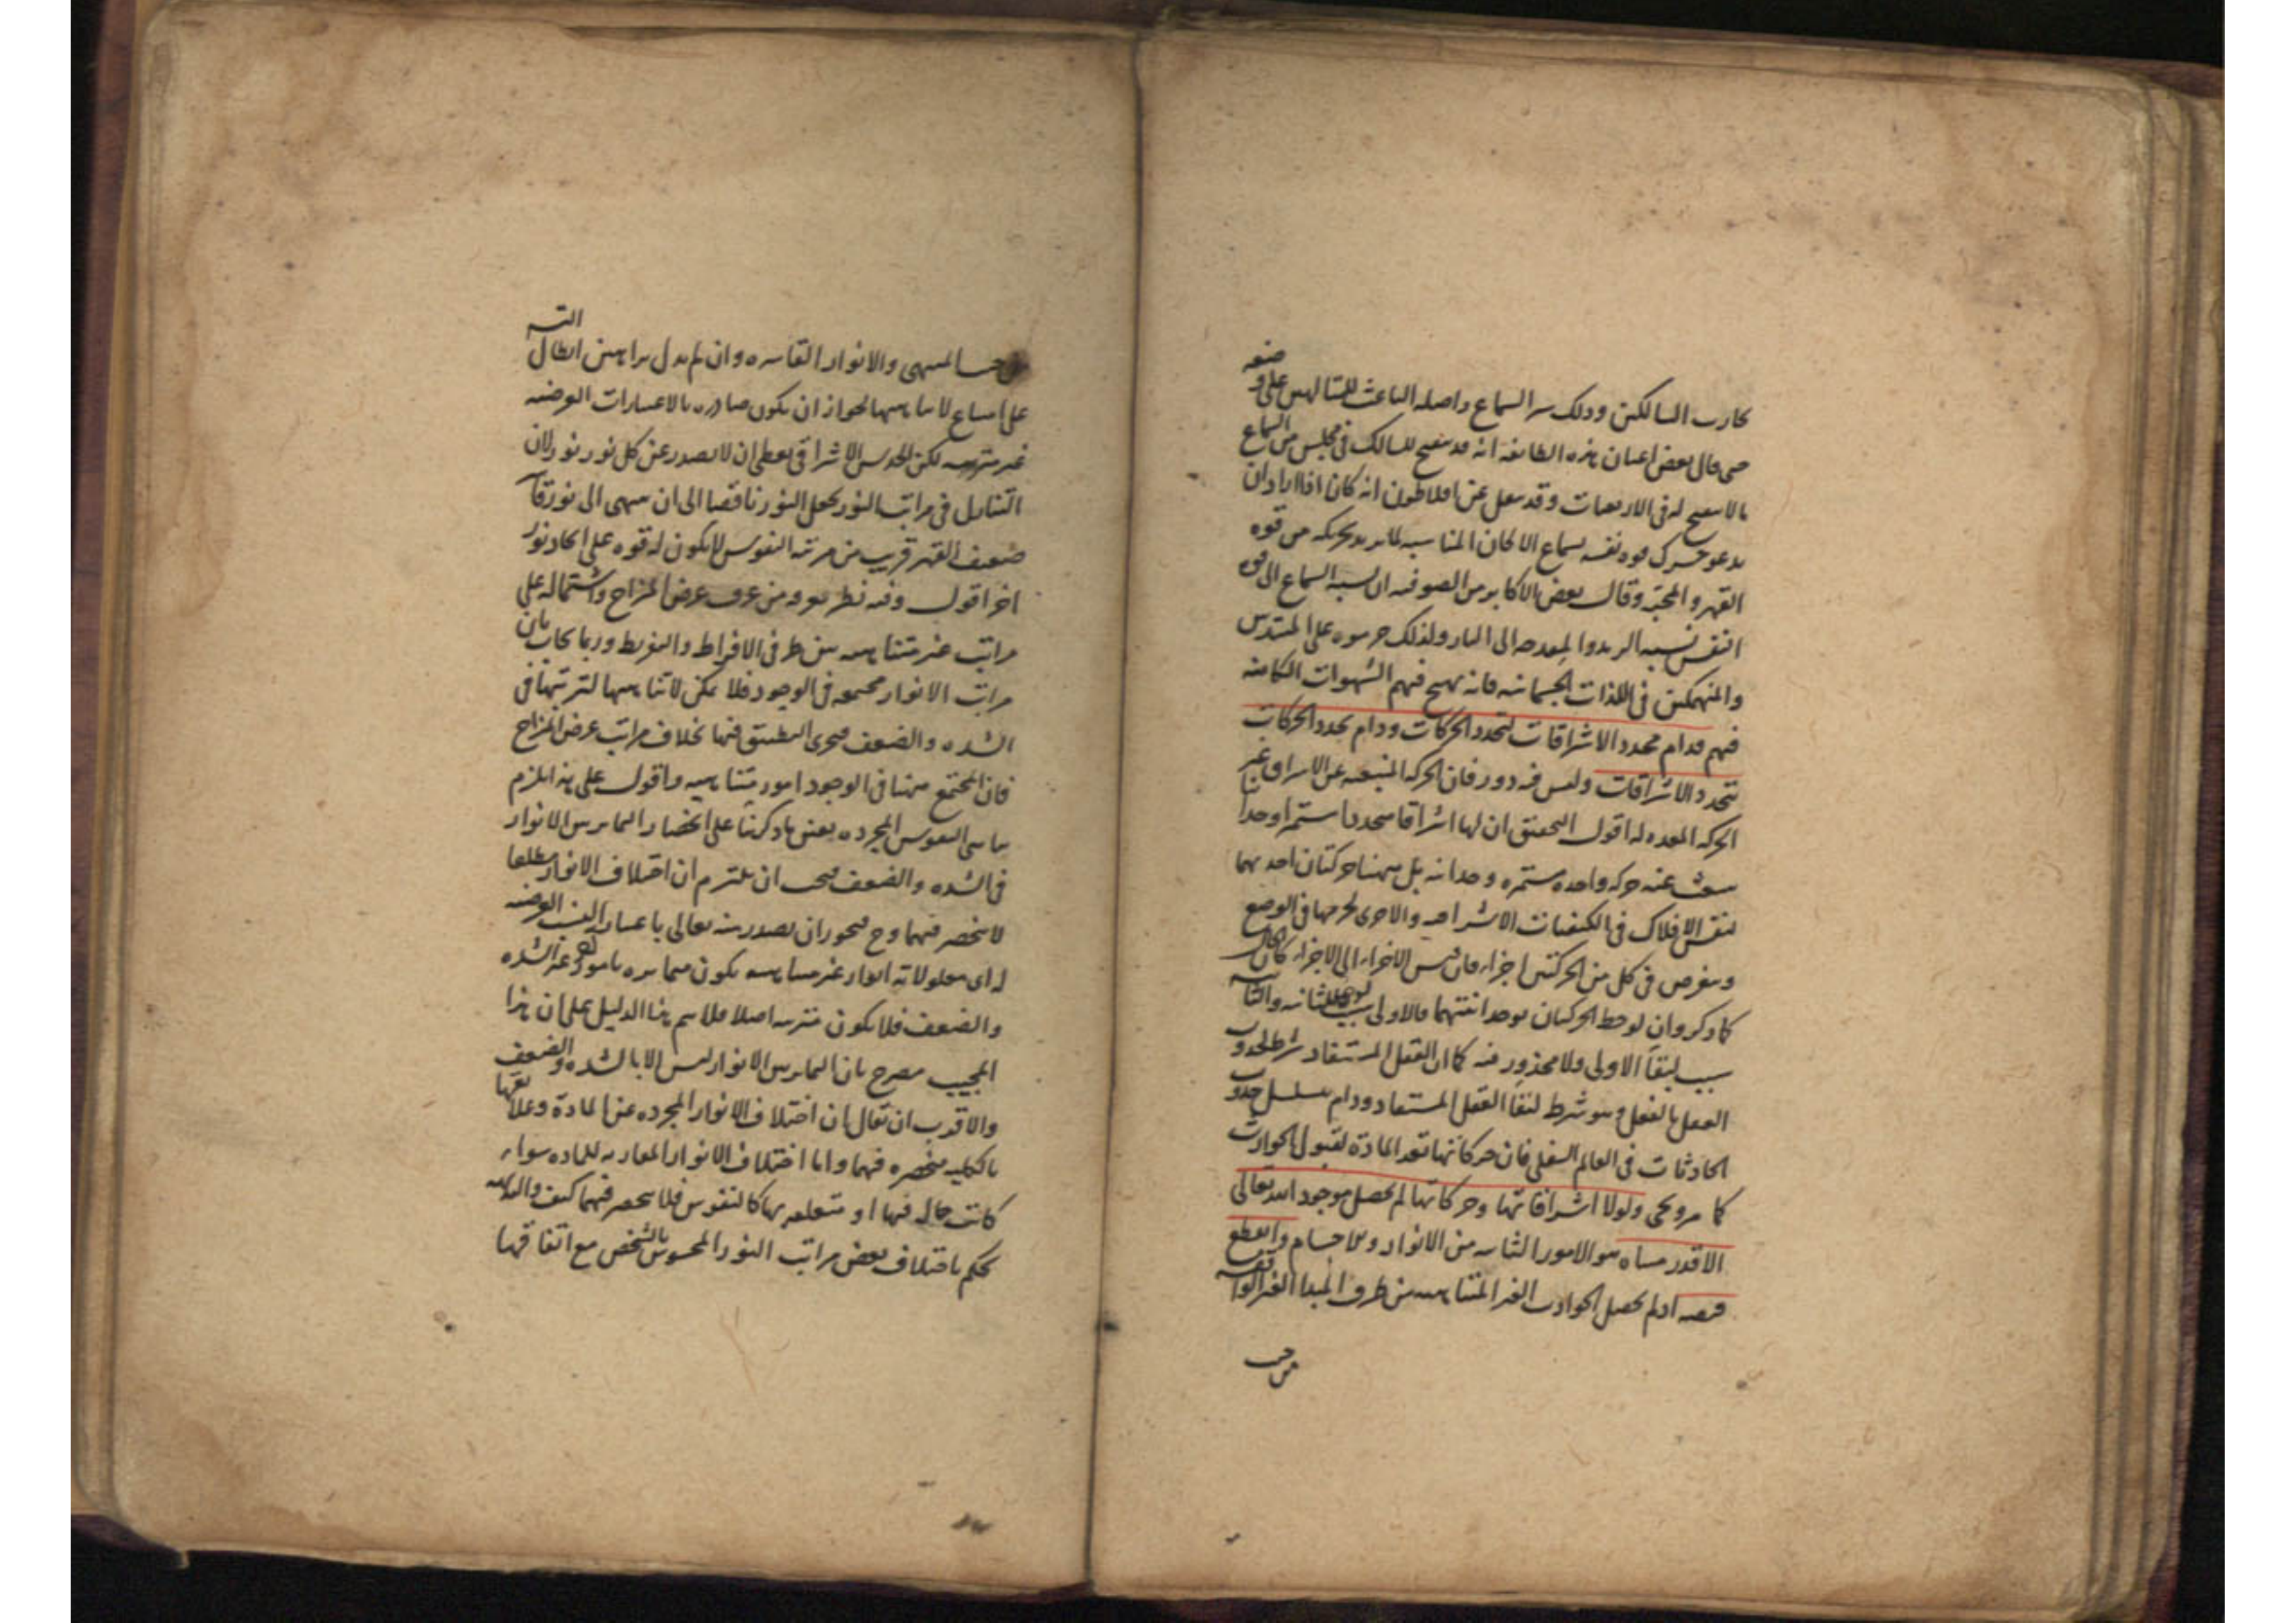 تجارب السالكين وذلك سر السماع واصله الباعث للمتالهين على وضعه
حتى قال بعض اعيان هذه الطائفة انه قد ينفتح للسالك في مجلس من السماع
ما لا ينفتح له في الاربعينات وقد نقل عن افلاطون انه كان اذا اراد ان
يدعو حرك قوة نفسه بسماع الالحان المناسبة لما يريد تحريكه من قوة
القهر والمحبة وقال بعض الاكابر من الصوفية ان نسبة السماع الى قوة
النفس نسبة الزند والمقدحة الى النار ولذلك حرموه على المبتدئين
والمنهمكين في اللذات الجسمانية فانه يهيج فيهم الشهوات الكامنة
فيهم فدام تجدد الاشراقات لتجدد الحركات ودام تجدد الحركات
بتجدد الاشراقات وليس فيه دور فان الحركة المنبعثة عن الاشراق غير
الحركة المعدة له اقول التحقيق ان لها اشراقا متجددا مستمرا واحدا
ينبعث عنه حركة واحدة مستمرة وحدانية بل هيهنا حركتان احديهما
لنفس الافلاك في الكيفيات الاشراقية والاخرى لجرمها في الوضع
ويفرض في كل من الحركتين اجزاء فان قيس الاجزاء الى الاجزاء كان الحال
كما ذكر وان لوحظ الحركتان بوحدانيتهما فالاولى سبب للثانية والثانية
سبب لبقاء الاولى ولا محذور فيه كما ان العقل المستفاد شرط لحدوث
العقل بالفعل وهو شرط لبقاء العقل المستفاد ودام بتسلسل حدوث
الحادثات في العالم السفلي فان حركاتها تعد المادة لقبول الحوادث
كما مر ويجيء ولولا اشراقاتها وحركاتها لم يحصل من جود الله تعالى
الا قدر متناه هو الامور الثابتة من الانوار والاجسام وانقطع
فيضه اذ لم يحصل الحوادث الغير المتناهية من طرف المبدا الغير الواقعة
من حيث
من حيث المنتهى والانوار القاهرة وان لم يدل براهين ابطال التسلسل
على امتناع لا تناهيها لجواز ان يكون صادرة بالاعتبارات العرضية
غير مترتبة لكن الحدس الاشراقي يعطي ان لا يصدر عن كل نور نور لان
التنازل في مراتب النور يجعل النور ناقصا الى ان ينتهي الى نور قاهر
ضعيف القهر قريب من مرتبة النفوس لا يكون له قوة على ايجاد نور
اخر اقول وفيه نظر يعرفه من عرف عرض المزاج واشتماله على
مراتب غير متناهية بين طرفي الافراط والتفريط وربما يجاب بان
مراتب الانوار مجتمعة في الوجود فلا يمكن لا تناهيها لترتبها في
الشدة والضعف فيجري التطبيق فيها بخلاف مراتب عرض المزاج
فان المجتمع منها في الوجود امور متناهية واقول على هذا يلزم
تناهي النفوس المجردة بعين ما ذكرنا على انحصار التمايز بين الانوار
في الشدة والضعف فيجب ان يلتزم ان اختلاف الانوار مطلقا
لا ينحصر فيهما وح فيجوز ان يصدر منه تعالى باعتبار النسب العرضية
له الى معلولاته انوار غير متناهية يكون متمايزة بامور اخر غير الشدة
والضعف فلا يكون مترتبة اصلا فلا يتم هذا الدليل على ان هذا
المجيب مصرح بان التمايز بين الانوار ليس الا بالشدة والضعف
والاقرب ان يقال ان اختلاف الانوار المجردة عن المادة وعلائقها
بالكلية منحصرة فيهما واما اختلاف الانوار المقارنة للمادة سواء
كانت حالة فيها او متعلقة بها كالنفوس فلا ينحصر فيهما كيف والبداهة
تحكم باختلاف بعض مراتب النور المحسوس بالشخص مع اتفاقهما